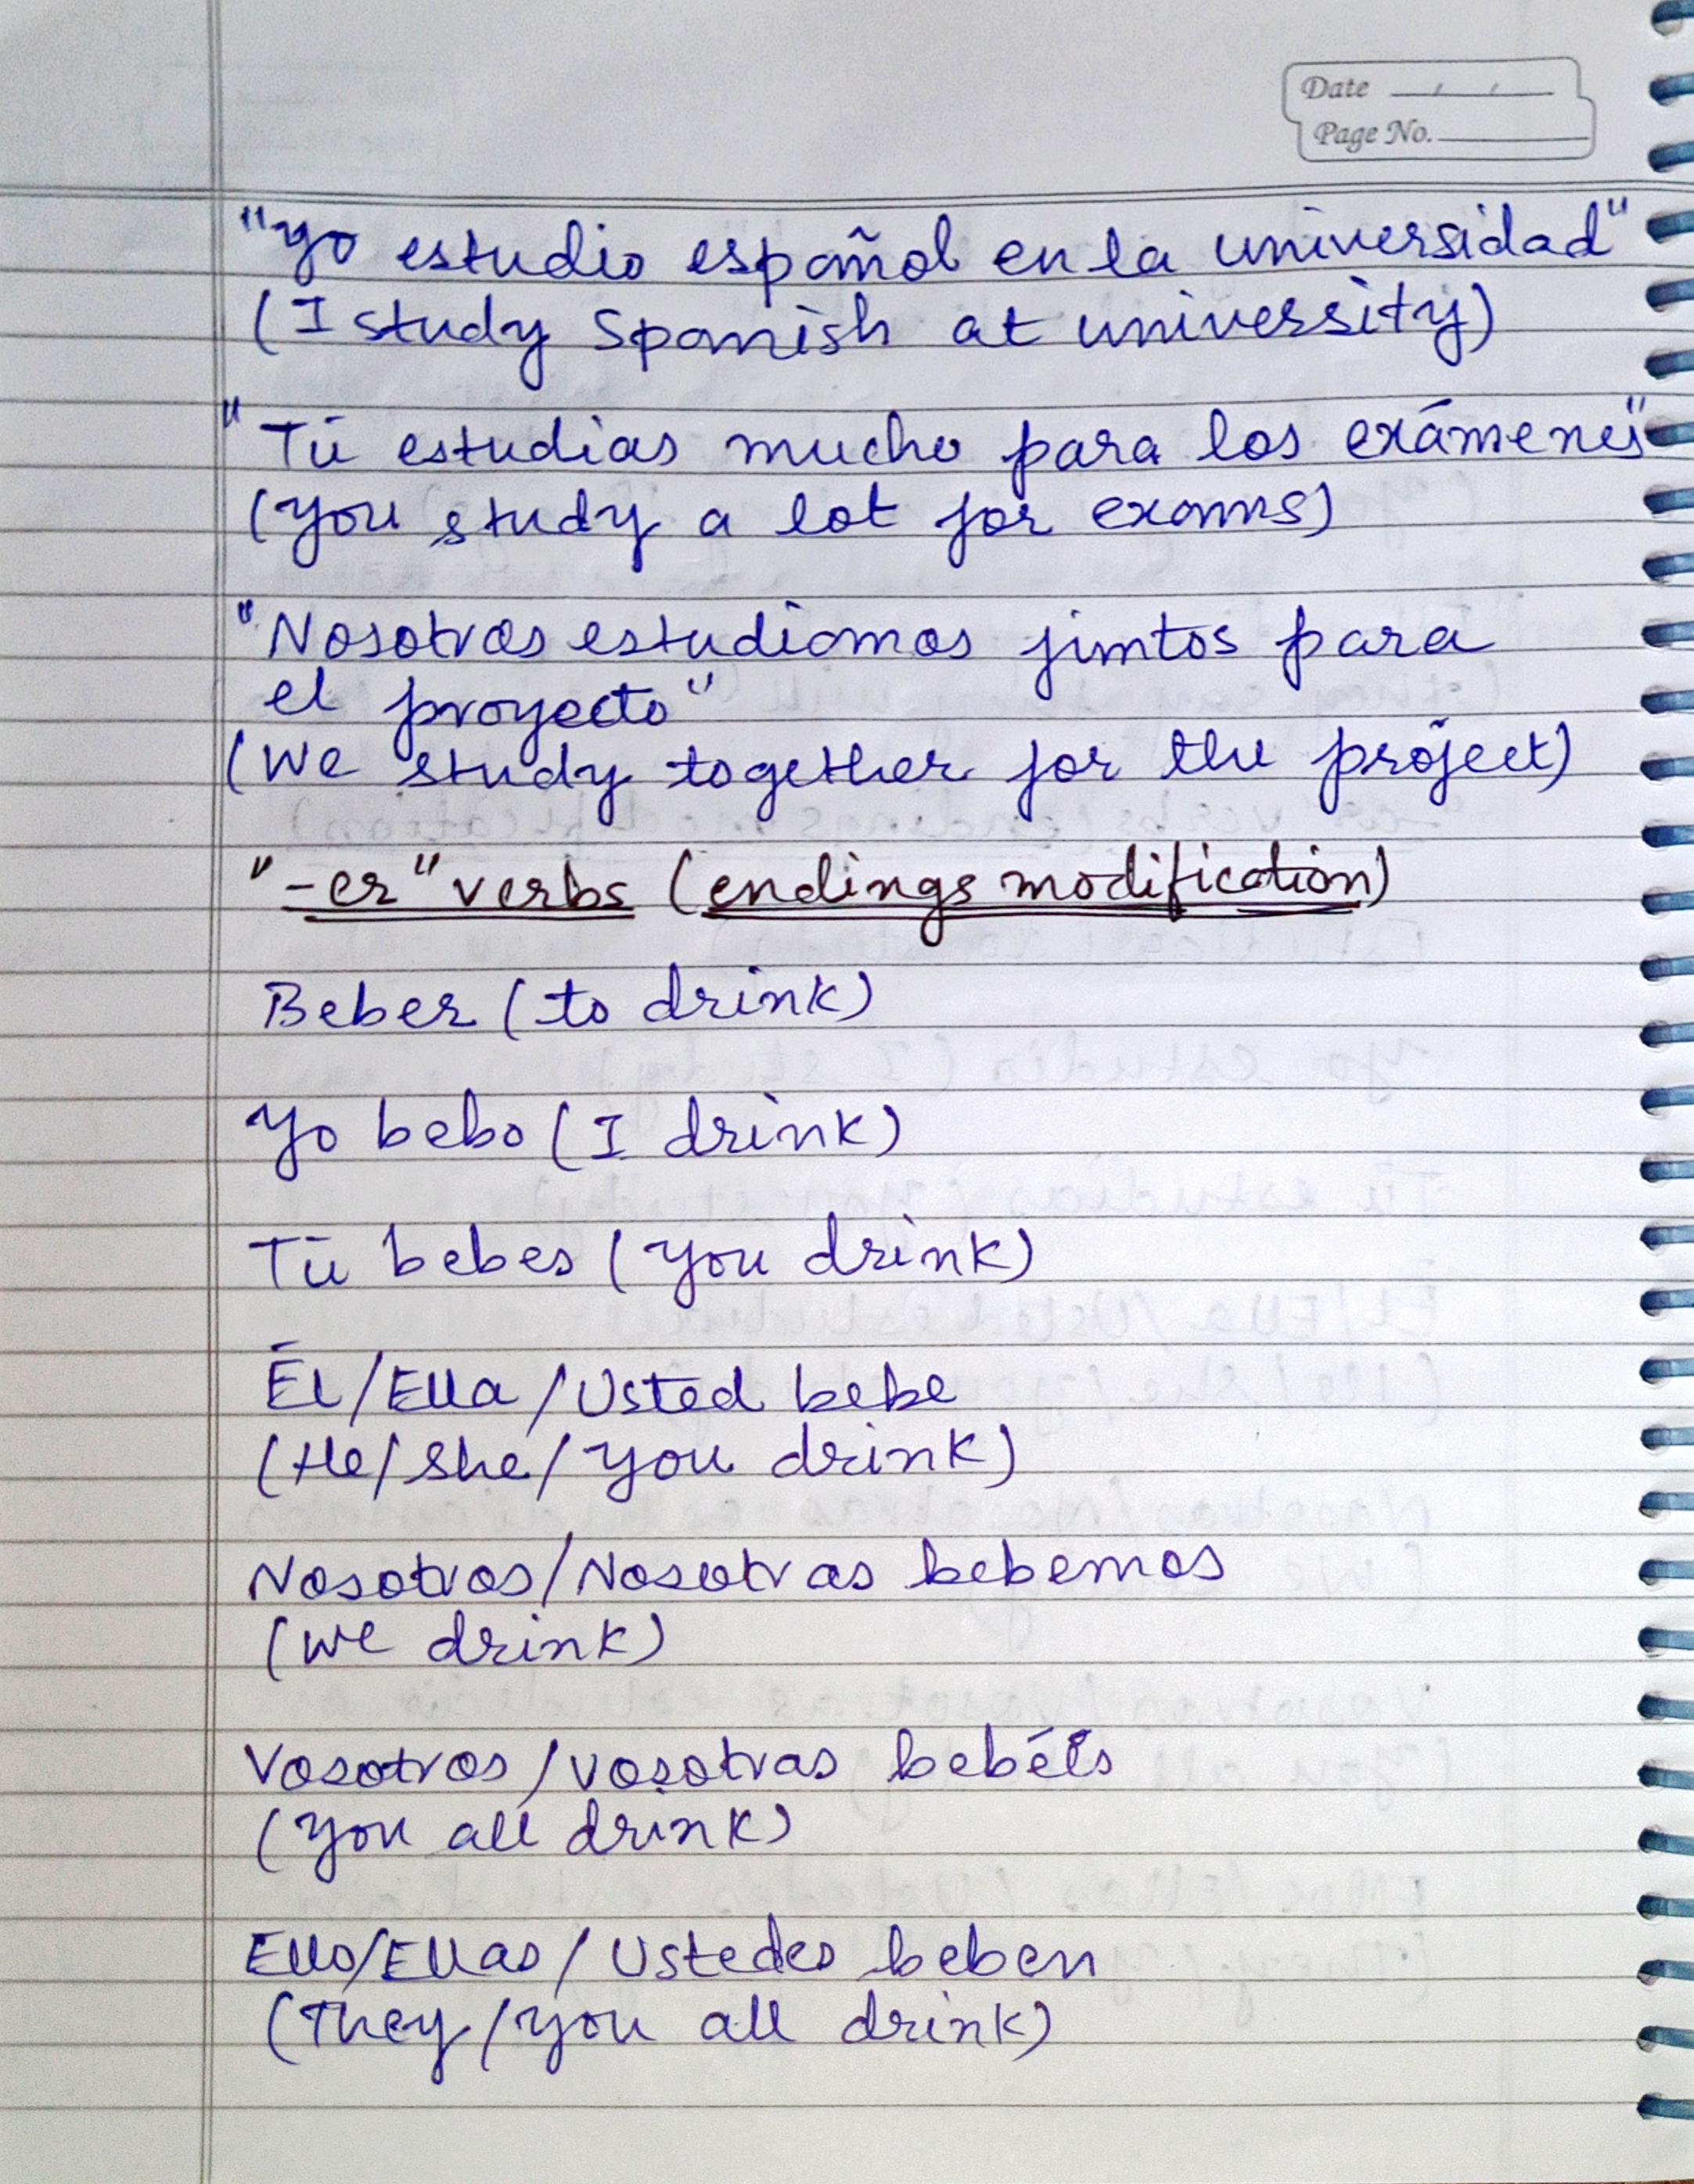 Date __/__/__
Page No.
"Yo estudio español en la universidad"
(I study Spanish at university)
"Tú estudias mucho para los exámenes"
(you study a lot for exams)
"Nosotros estudiamos juntos para
el proyecto"
(We study together for the project)
"-er" verbs (endings modification)
Beber (to drink)
Yo bebo (I drink)
Tú bebes (you drink)
Él/Ella/Usted bebe
(He/She/you drink)
Nosotros/Nosotras bebemos
(we drink)
Vosotros/vosotras bebéis
(you all drink)
Ellos/Ellas/Ustedes beben
(They/you all drink)